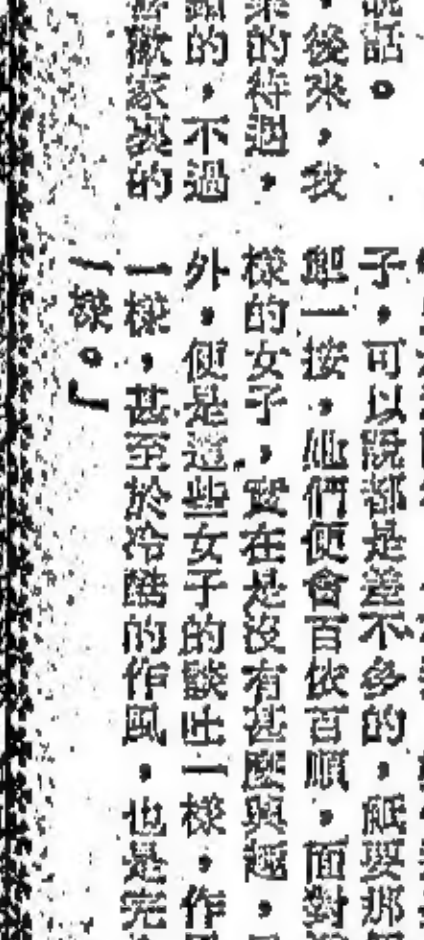 說話。
，後來，我
的待遇，
的，不過
家裏的
子，可以說都是差不多的，祇要那
一按，他們便會百依百順，面對
樣的女子，實在是沒有甚麼興趣，
外，便是這些女子的談吐一樣，作
一樣，甚至於冷酷的作風，也是完
一樣。』